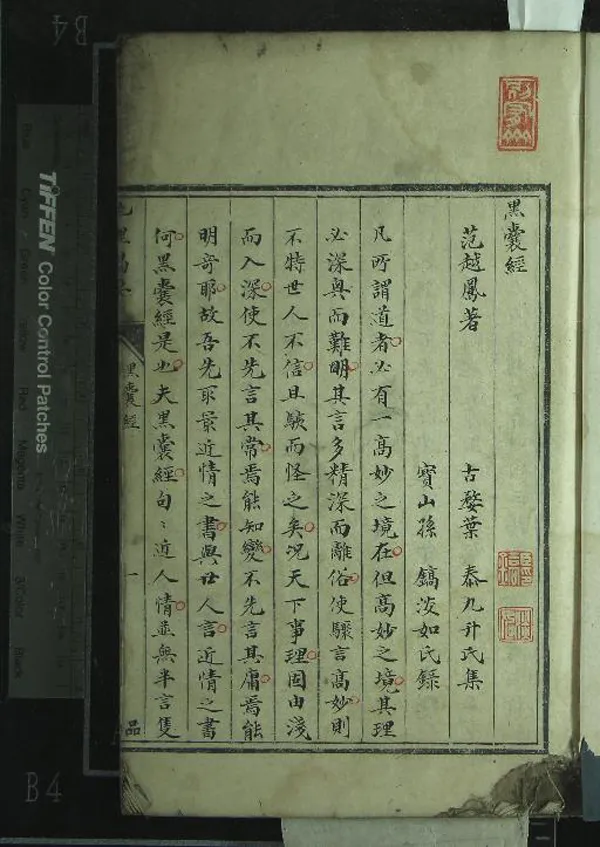 黑囊經
范越鳳著
古婺葉 泰九升氏集
寶山孫 鎬泼如氏録
凡所謂道者必有一高妙之境在但高妙之境其理
必深奥而難明其言多精深而離俗使驟言高妙則
不特世人不信且駭而怪之矣况天下事理固由淺
而入深使不先言其常焉能知變不先言其庸焉能
明奇耶故吾先取最近情之書與世人言近情之書
何黑囊經是也夫黑囊經句〻近人情並無半言隻
黑囊經
一
品
B4
B4
TIFFEN Color Control Patches
Blue
Cyan
Green
Yellow
Red
Magenta
White
3/Color
Black